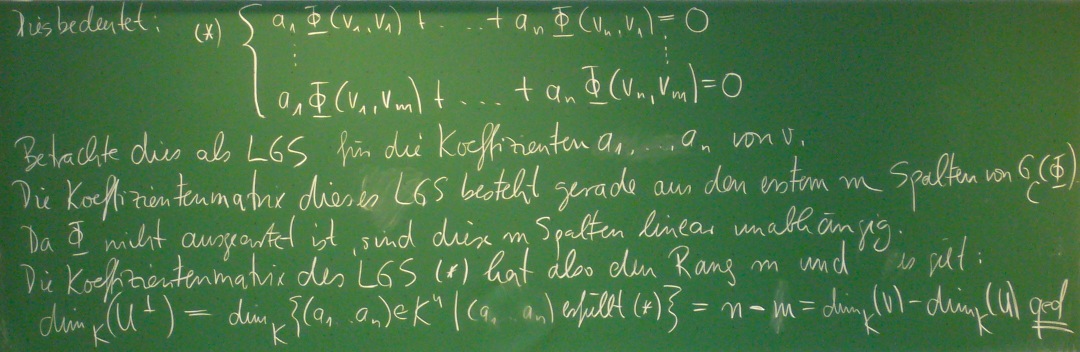 Dies bedeutet: (*) { a₁ Φ(v₁,v₁) + .... + aₙ Φ(vₙ,v₁) = 0
a₁ Φ(v₁,vₘ) + .... + aₙ Φ(vₙ,vₘ) = 0
Betrachte dies als LGS für die Koeffizienten a₁,....,aₙ von v.
Die Koeffizientenmatrix dieses LGS besteht gerade aus den erstem m Spalten von G_C(Φ).
Da Φ nicht ausgeartet ist, sind diese m Spalten linear unabhängig.
Die Koeffizientenmatrix des LGS (*) hat also den Rang m und es gilt:
dim_K(U^⊥) = dim_K{(a₁...aₙ)∈Kⁿ | (a₁...aₙ) erfüllt (*)} = n - m = dim_K(V) - dim_K(U) qed